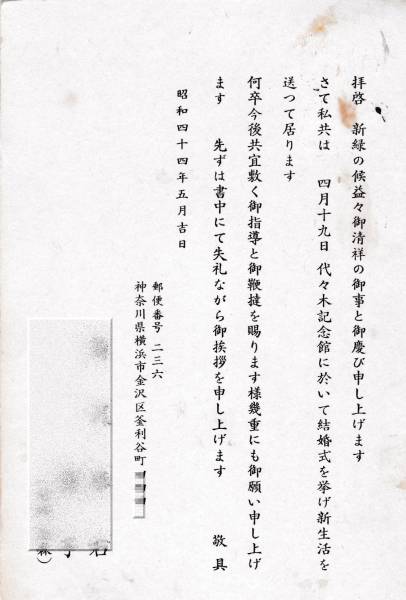 拝啓　新緑の候益々御清祥の御事と御慶び申し上げます
さて私共は　四月十九日 代々木記念館に於いて結婚式を挙げ新生活を
送つて居ります
何卒今後共宜敷く御指導と御鞭撻を賜ります様幾重にも御願い申し上げ
ます　先ずは書中にて失礼ながら御挨拶を申し上げます　敬具
昭和四十四年五月吉日
郵便番号 二三六
神奈川県横浜市金沢区釜利谷町